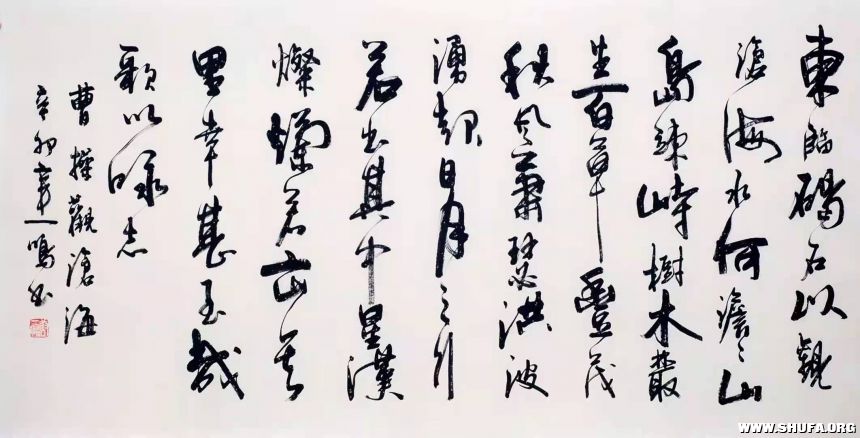 東臨碣石以觀
滄海水何澹〻山
島竦峙樹木叢
生百草豐茂
秋風蕭瑟洪波
湧起日月之行
若出其中星漢
燦爛若出其
里幸甚至哉
歌以咏志
曹操觀滄海
辛卯一鳴書
WWW.SHUFA.ORG